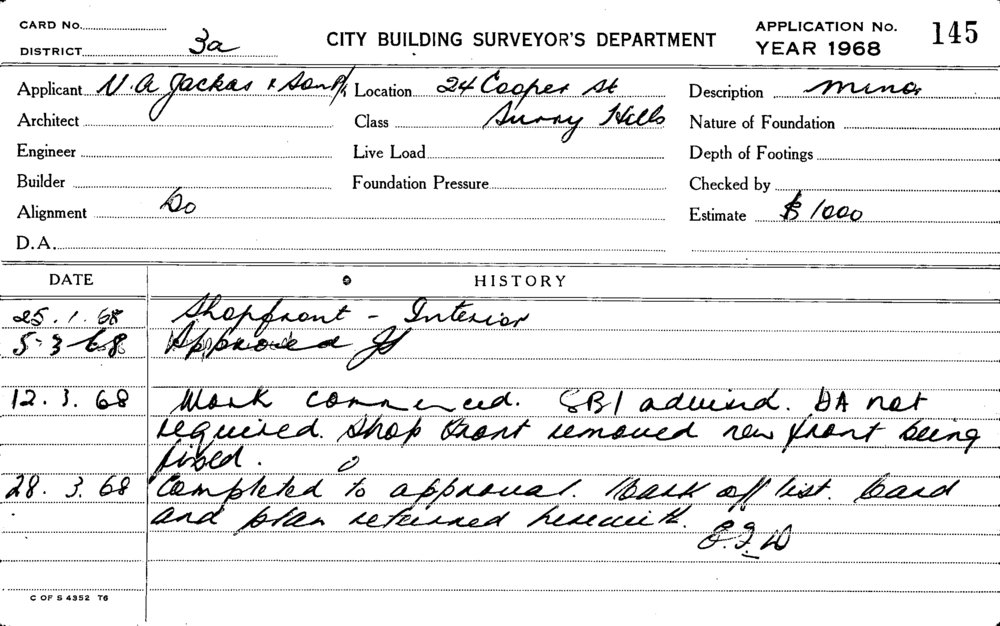 CARD No.
DISTRICT 3a
CITY BUILDING SURVEYOR'S DEPARTMENT
APPLICATION No. 145
YEAR 1968
Applicant N.A Jackas & Son P/L Location 24 Cooper St Description Minor
Architect Class Surry Hills Nature of Foundation
Engineer Live Load Depth of Footings
Builder Foundation Pressure Checked by
Alignment Do Estimate $1000
D.A.
DATE HISTORY
25.1.68 Shopfront - Interior
5-3-68 Approved
12.3.68 Work commenced. SBI advised. DA not
required. Shop front removed new front being
fixed.
28.3.68 Completed to approval. Mark off list. Card
and plan returned herewith.
E.F.W
C OF S 4352 76